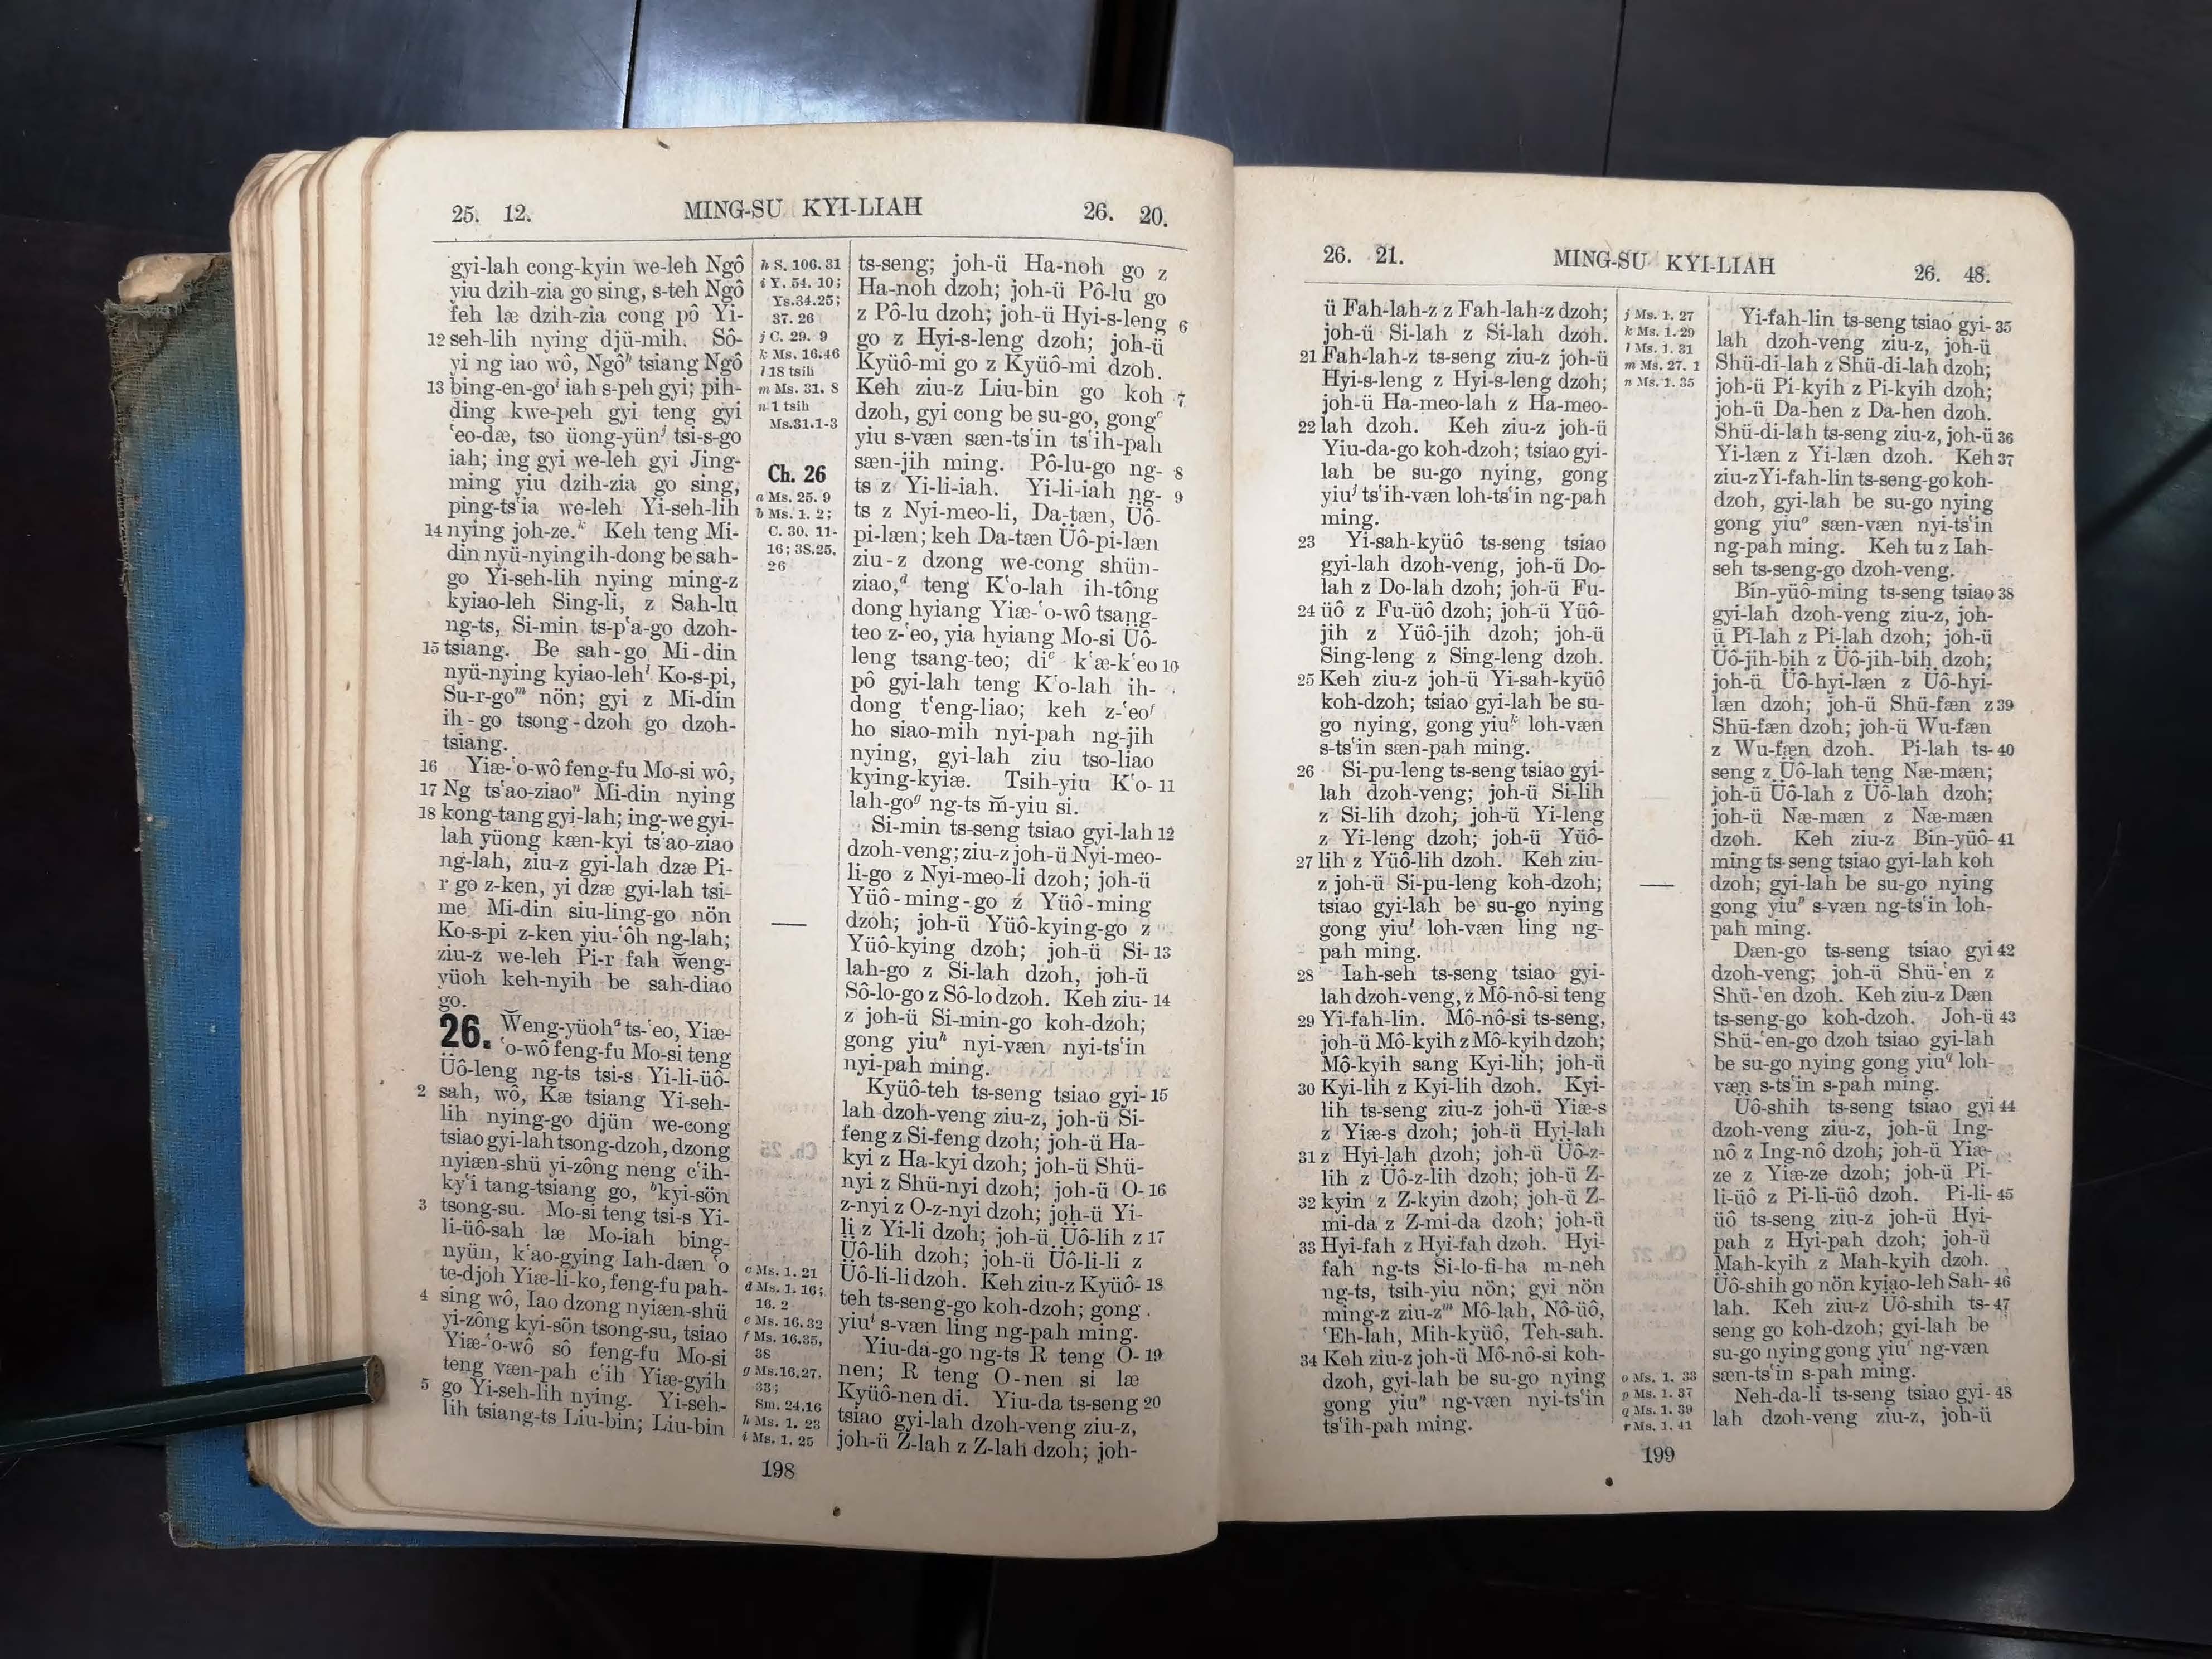 25. 12. MING-SU KYI-LIAH 26. 20.
gyi-lah cong-kyin we-leh Ngô
yiu dzih-zia go sing, s-teh Ngô
feh læ dzih-zia cong pô Yi-
12 seh-lih nying djü-mih. Sô-
yi ng iao wô, Ngôʰ tsiang Ngô
13 bing-en-goⁱ iah s-peh gyi; pih-
ding kwe-peh gyi teng gyi
ʻeo-dæ, tso üong-yünʲ tsi-s-go
iah; ing gyi we-leh gyi Jing-
ming yiu dzih-zia go sing,
ping-tsʻia we-leh Yi-seh-lih
14 nying joh-ze.ᵏ Keh teng Mi-
din nyü-nying ih-dong be sah-
go Yi-seh-lih nying ming-z
kyiao-leh Sing-li, z Sah-lu
ng-ts, Si-min ts-pʻa-go dzoh-
15 tsiang. Be sah-go Mi-din
nyü-nying kyiao-lehˡ Ko-s-pi,
Su-r-goᵐ nön; gyi z Mi-din
ih-go tsong-dzoh go dzoh-
tsiang.
16 Yiæ-ʻo-wô feng-fu Mo-si wô,
17 Ng tsʻao-ziaoⁿ Mi-din nying
18 kong-tang gyi-lah; ing-we gyi-
lah yüong kæn-kyi tsʻao-ziao
ng-lah, ziu-z gyi-lah dzæ Pi-
r go z-ken, yi dzæ gyi-lah tsi-
me Mi-din siu-ling-go nön
Ko-s-pi z-ken yiu-ʻôh ng-lah;
ziu-z we-leh Pi-r fah w̆eng-
yüoh keh-nyih be sah-diao
go.
26. W̆eng-yüohᵃ ts-ʻeo, Yiæ-
ʻo-wô feng-fu Mo-si teng
Üô-leng ng-ts tsi-s Yi-li-üô-
2 sah, wô, Kæ tsiang Yi-seh-
lih nying-go djün we-cong
tsiao gyi-lah tsong-dzoh, dzong
nyiæn-shü yi-zông neng cʻih-
kyʻi tang-tsiang go, ᵇkyi-sön
3 tsong-su. Mo-si teng tsi-s Yi-
li-üô-sah læ Mo-iah bing-
nyün, kʻao-gying Iah-dæn ʻo
te-djoh Yiæ-li-ko, feng-fu pah-
4 sing wô, Iao dzong nyiæn-shü
yi-zông kyi-sön tsong-su, tsiao
Yiæ-ʻo-wô sô feng-fu Mo-si
teng væn-pah cʻih Yiæ-gyih
5 go Yi-seh-lih nying. Yi-seh-
lih tsiang-ts Liu-bin; Liu-bin
h S. 106. 31
i Y. 54. 10;
Ys. 34. 25;
37. 26
j C. 29. 9
k Ms. 16.46
l 18 tsih
m Ms. 31. 8
n 1 tsih
Ms. 31. 1-3
Ch. 26
a Ms. 25. 9
b Ms. 1. 2;
C. 30. 11-
16; 38. 25,
26
c Ms. 1. 21
d Ms. 1. 16;
16. 2
e Ms. 16. 32
f Ms. 16.35,
38
g Ms. 16.27,
33;
Sm. 24.16
h Ms. 1. 23
i Ms. 1. 25
ts-seng; joh-ü Ha-noh go z
Ha-noh dzoh; joh-ü Pô-lu go
z Pô-lu dzoh; joh-ü Hyi-s-leng 6
go z Hyi-s-leng dzoh; joh-ü
Kyüô-mi go z Kyüô-mi dzoh.
Keh ziu-z Liu-bin go koh 7
dzoh, gyi cong be su-go, gongᶜ
yiu s-væn sæn-tsʻin tsʻih-pah
sæn-jih ming. Pô-lu-go ng- 8
ts z Yi-li-iah. Yi-li-iah ng- 9
ts z Nyi-meo-li, Da-tæn, Üô-
pi-læn; keh Da-tæn Üô-pi-læn
ziu-z dzong we-cong shün-
ziao,ᵈ teng Kʻo-lah ih-tông
dong hyiang Yiæ-ʻo-wô tsang-
teo z-ʻeo, yia hyiang Mo-si Üô-
leng tsang-teo; diᵉ kʻæ-kʻeo 10
pô gyi-lah teng Kʻo-lah ih-
dong tʻeng-liao; keh z-ʻeoᶠ
ho siao-mih nyi-pah ng-jih
nying, gyi-lah ziu tso-liao
kying-kyiæ. Tsih-yiu Kʻo- 11
lah-goᵍ ng-ts m̆-yiu si.
Si-min ts-seng tsiao gyi-lah 12
dzoh-veng; ziu-z joh-ü Nyi-meo-
li-go z Nyi-meo-li dzoh; joh-ü
Yüô-ming-go z Yüô-ming
dzoh; joh-ü Yüô-kying-go z
Yüô-kying dzoh; joh-ü Si- 13
lah-go z Si-lah dzoh, joh-ü
Sô-lo-go z Sô-lo dzoh. Keh ziu- 14
z joh-ü Si-min-go koh-dzoh;
gong yiuʰ nyi-væn nyi-tsʻin
nyi-pah ming.
Kyüô-teh ts-seng tsiao gyi- 15
lah dzoh-veng ziu-z, joh-ü Si-
feng z Si-feng dzoh; joh-ü Ha-
kyi z Ha-kyi dzoh; joh-ü Shü-
nyi z Shü-nyi dzoh; joh-ü O- 16
z-nyi z O-z-nyi dzoh; joh-ü Yi-
li z Yi-li dzoh; joh-ü Üô-lih z 17
Üô-lih dzoh; joh-ü Üô-li-li z
Üô-li-li dzoh. Keh ziu-z Kyüô- 18
teh ts-seng-go koh-dzoh; gong
yiuⁱ s-væn ling ng-pah ming.
Yiu-da-go ng-ts R teng O- 19
nen; R teng O-nen si læ
Kyüô-nen di. Yiu-da ts-seng 20
tsiao gyi-lah dzoh-veng ziu-z,
joh-ü Z-lah z Z-lah dzoh; joh-
198
26. 21. MING-SU KYI-LIAH 26. 48.
ü Fah-lah-z z Fah-lah-z dzoh;
joh-ü Si-lah z Si-lah dzoh.
21 Fah-lah-z ts-seng ziu-z joh-ü
Hyi-s-leng z Hyi-s-leng dzoh;
joh-ü Ha-meo-lah z Ha-meo-
22 lah dzoh. Keh ziu-z joh-ü
Yiu-da-go koh-dzoh; tsiao gyi-
lah be su-go nying, gong
yiuʲ tsʻih-væn loh-tsʻin ng-pah
ming.
23 Yi-sah-kyüô ts-seng tsiao
gyi-lah dzoh-veng, joh-ü Do-
lah z Do-lah dzoh; joh-ü Fu-
24 üô z Fu-üô dzoh; joh-ü Yüô-
jih z Yüô-jih dzoh; joh-ü
Sing-leng z Sing-leng dzoh.
25 Keh ziu-z joh-ü Yi-sah-kyüô
koh-dzoh; tsiao gyi-lah be su-
go nying, gong yiuᵏ loh-væn
s-tsʻin sæn-pah ming.
26 Si-pu-leng ts-seng tsiao gyi-
lah dzoh-veng; joh-ü Si-lih
z Si-lih dzoh; joh-ü Yi-leng
z Yi-leng dzoh; joh-ü Yüô-
27 lih z Yüô-lih dzoh. Keh ziu-
z joh-ü Si-pu-leng koh-dzoh;
tsiao gyi-lah be su-go nying
gong yiuˡ loh-væn ling ng-
pah ming.
28 Iah-seh ts-seng tsiao gyi-
lah dzoh-veng, z Mô-nô-si teng
29 Yi-fah-lin. Mô-nô-si ts-seng,
joh-ü Mô-kyih z Mô-kyih dzoh;
Mô-kyih sang Kyi-lih; joh-ü
30 Kyi-lih z Kyi-lih dzoh. Kyi-
lih ts-seng ziu-z joh-ü Yiæ-s
z Yiæ-s dzoh; joh-ü Hyi-lah
31 z Hyi-lah dzoh; joh-ü Üô-z-
lih z Üô-z-lih dzoh; joh-ü Z-
32 kyin z Z-kyin dzoh; joh-ü Z-
mi-da z Z-mi-da dzoh; joh-ü
33 Hyi-fah z Hyi-fah dzoh. Hyi-
fah ng-ts Si-lo-fi-ha m-neh
ng-ts, tsih-yiu nön; gyi nön
ming-z ziu-zᵐ Mô-lah, Nô-üô,
ʻEh-lah, Mih-kyüô, Teh-sah.
34 Keh ziu-z joh-ü Mô-nô-si koh-
dzoh, gyi-lah be su-go nying
gong yiuⁿ ng-væn nyi-tsʻin
tsʻih-pah ming.
j Ms. 1. 27
k Ms. 1. 29
l Ms. 1. 31
m Ms. 27. 1
n Ms. 1. 35
o Ms. 1. 33
p Ms. 1. 37
q Ms. 1. 39
r Ms. 1. 41
Yi-fah-lin ts-seng tsiao gyi- 35
lah dzoh-veng ziu-z, joh-ü
Shü-di-lah z Shü-di-lah dzoh;
joh-ü Pi-kyih z Pi-kyih dzoh;
joh-ü Da-hen z Da-hen dzoh.
Shü-di-lah ts-seng ziu-z, joh-ü 36
Yi-læn z Yi-læn dzoh. Keh 37
ziu-z Yi-fah-lin ts-seng-go koh-
dzoh, gyi-lah be su-go nying
gong yiuᵒ sæn-væn nyi-tsʻin
ng-pah ming. Keh tu z Iah-
seh ts-seng-go dzoh-veng.
Bin-yüô-ming ts-seng tsiao 38
gyi-lah dzoh-veng ziu-z, joh-
ü Pi-lah z Pi-lah dzoh; joh-ü
Üô-jih-bih z Üô-jih-bih dzoh;
joh-ü Üô-hyi-læn z Üô-hyi-
læn dzoh; joh-ü Shü-fæn z 39
Shü-fæn dzoh; joh-ü Wu-fæn
z Wu-fæn dzoh. Pi-lah ts- 40
seng z Üô-lah teng Næ-mæn;
joh-ü Üô-lah z Üô-lah dzoh;
joh-ü Næ-mæn z Næ-mæn
dzoh. Keh ziu-z Bin-yüô- 41
ming ts-seng tsiao gyi-lah koh
dzoh; gyi-lah be su-go nying
gong yiuᵖ s-væn ng-tsʻin loh-
pah ming.
Dæn-go ts-seng tsiao gyi 42
dzoh-veng; joh-ü Shü-ʻen z
Shü-ʻen dzoh. Keh ziu-z Dæn
ts-seng-go koh-dzoh. Joh-ü 43
Shü-ʻen-go dzoh tsiao gyi-lah
be su-go nying gong yiu𐞥 loh-
væn s-tsʻin s-pah ming.
Üô-shih ts-seng tsiao gyi 44
dzoh-veng ziu-z, joh-ü Ing-
nô z Ing-nô dzoh; joh-ü Yiæ-
ze z Yiæ-ze dzoh; joh-ü Pi-
li-üô z Pi-li-üô dzoh. Pi-li- 45
üô ts-seng ziu-z joh-ü Hyi-
pah z Hyi-pah dzoh; joh-ü
Mah-kyih z Mah-kyih dzoh.
Üô-shih go nön kyiao-leh Sah- 46
lah. Keh ziu-z Üô-shih ts- 47
seng go koh-dzoh; gyi-lah be
su-go nying gong yiuʳ ng-væn
sæn-tsʻin s-pah ming.
Neh-da-li ts-seng tsiao gyi- 48
lah dzoh-veng ziu-z, joh-ü
199